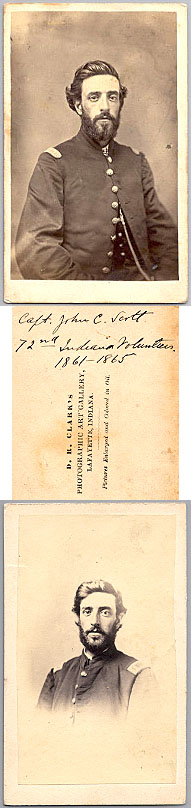 Capt. John C. Scott
72nd Indiana Volunteers.
1861-1865
D. R. CLARK'S
PHOTOGRAPHIC ART GALLERY,
LAFAYETTE, INDIANA.
Pictures Enlarged and Colored in Oil.